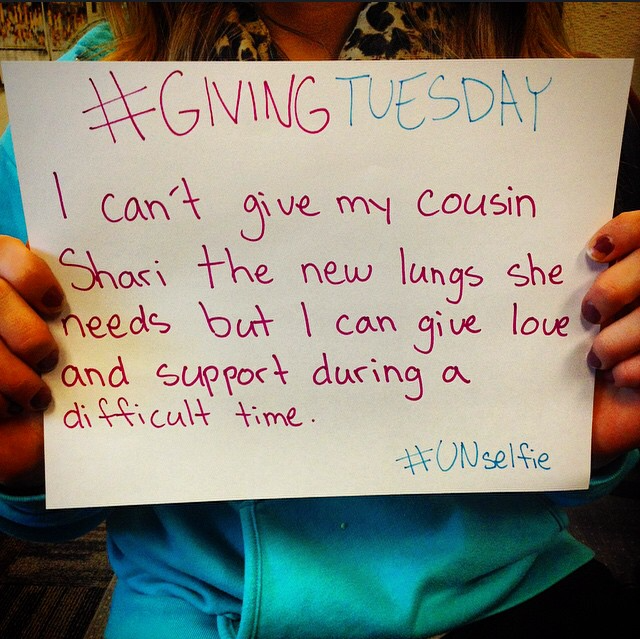 #GIVINGTUESDAY
I can't give my cousin
Shari the new lungs she
needs but I can give love
and support during a
difficult time.
#UNselfie